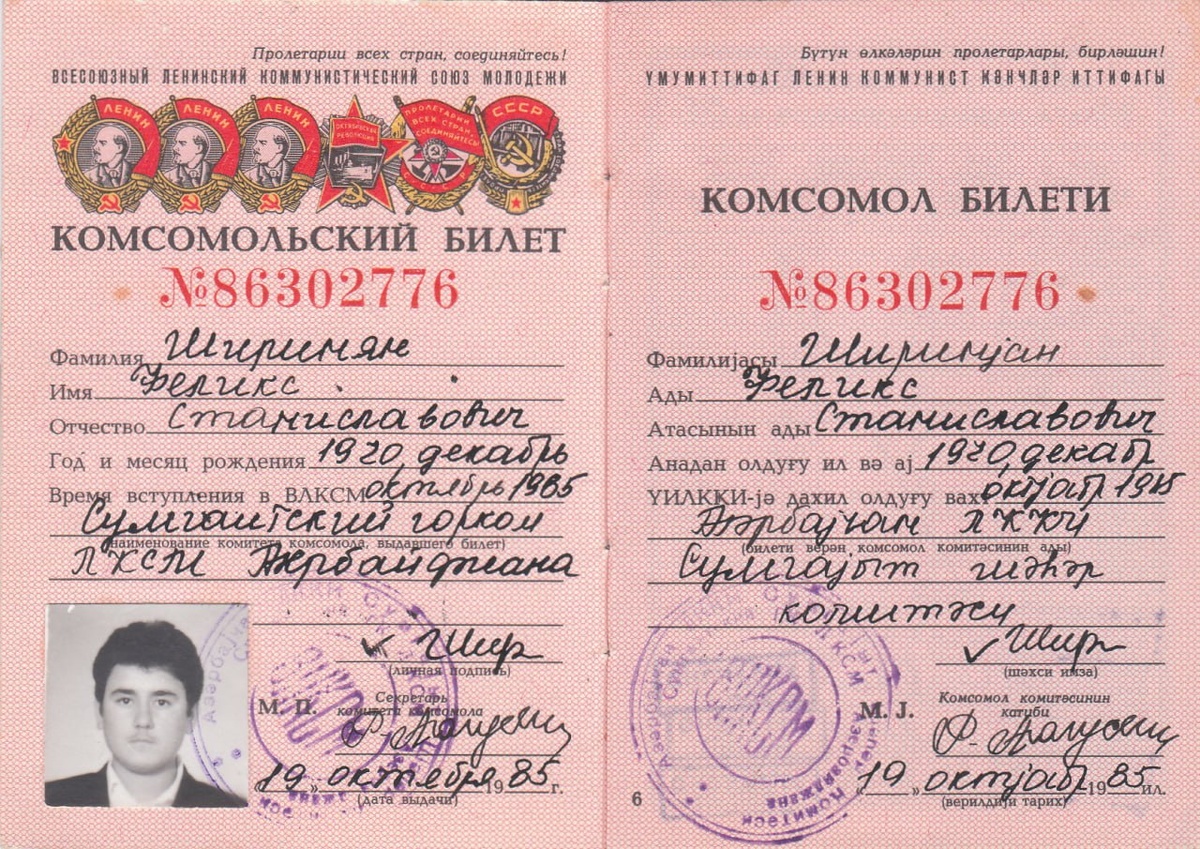 Пролетарии всех стран, соединяйтесь!
ВСЕСОЮЗНЫЙ ЛЕНИНСКИЙ КОММУНИСТИЧЕСКИЙ СОЮЗ МОЛОДЕЖИ
ЛЕНИН ЛЕНИН ЛЕНИН
ОКТЯБРЬСКАЯ РЕВОЛЮЦИЯ
ПРОЛЕТАРИИ ВСЕХ СТРАН, СОЕДИНЯЙТЕСЬ!
СССР
СССР
КОМСОМОЛЬСКИЙ БИЛЕТ
№86302776
Фамилия Ширинян
Имя Феликс
Отчество Станиславович
Год и месяц рождения 1970, декабрь
Время вступления в ВЛКСМ октябрь 1985
Сумгаитский горком
(наименование комитета комсомола, выдавшего билет)
ЛКСМ Азербайджана
Шир
(личная подпись)
М. П.
Секретарь
комитета комсомола
„19„ октября 1985 г.
(дата выдачи)
Бүтүн өлкәләрин пролетарлары, бирләшин!
ҮМУМИТТИФАГ ЛЕНИН КОММУНИСТ ҜӘНЧЛӘР ИТТИФАГЫ
КОМСОМОЛ БИЛЕТИ
№86302776
Фамилијасы Ширинјан
Ады Феликс
Атасынын ады Станиславович
Анадан олдуғу ил вә ај 1970, декабр
ҮИЛКҜИ-јә дахил олдуғу вахт октјабр 1985
Азәрбајҹан ЛКҜИ
(билети верән комсомол комитәсинин ады)
Сумгајыт шәһәр
комитәси
Шир
(шәхси имза)
М. Ј.
Комсомол комитәсинин
катиби
„19„ октјабр 1985 ил.
(верилдији тарих)
6